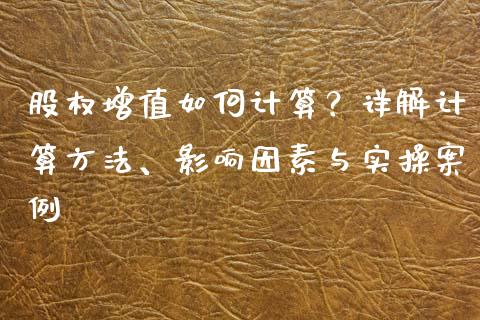 股权增值如何计算？详解计
算方法、影响因素与实操案
例